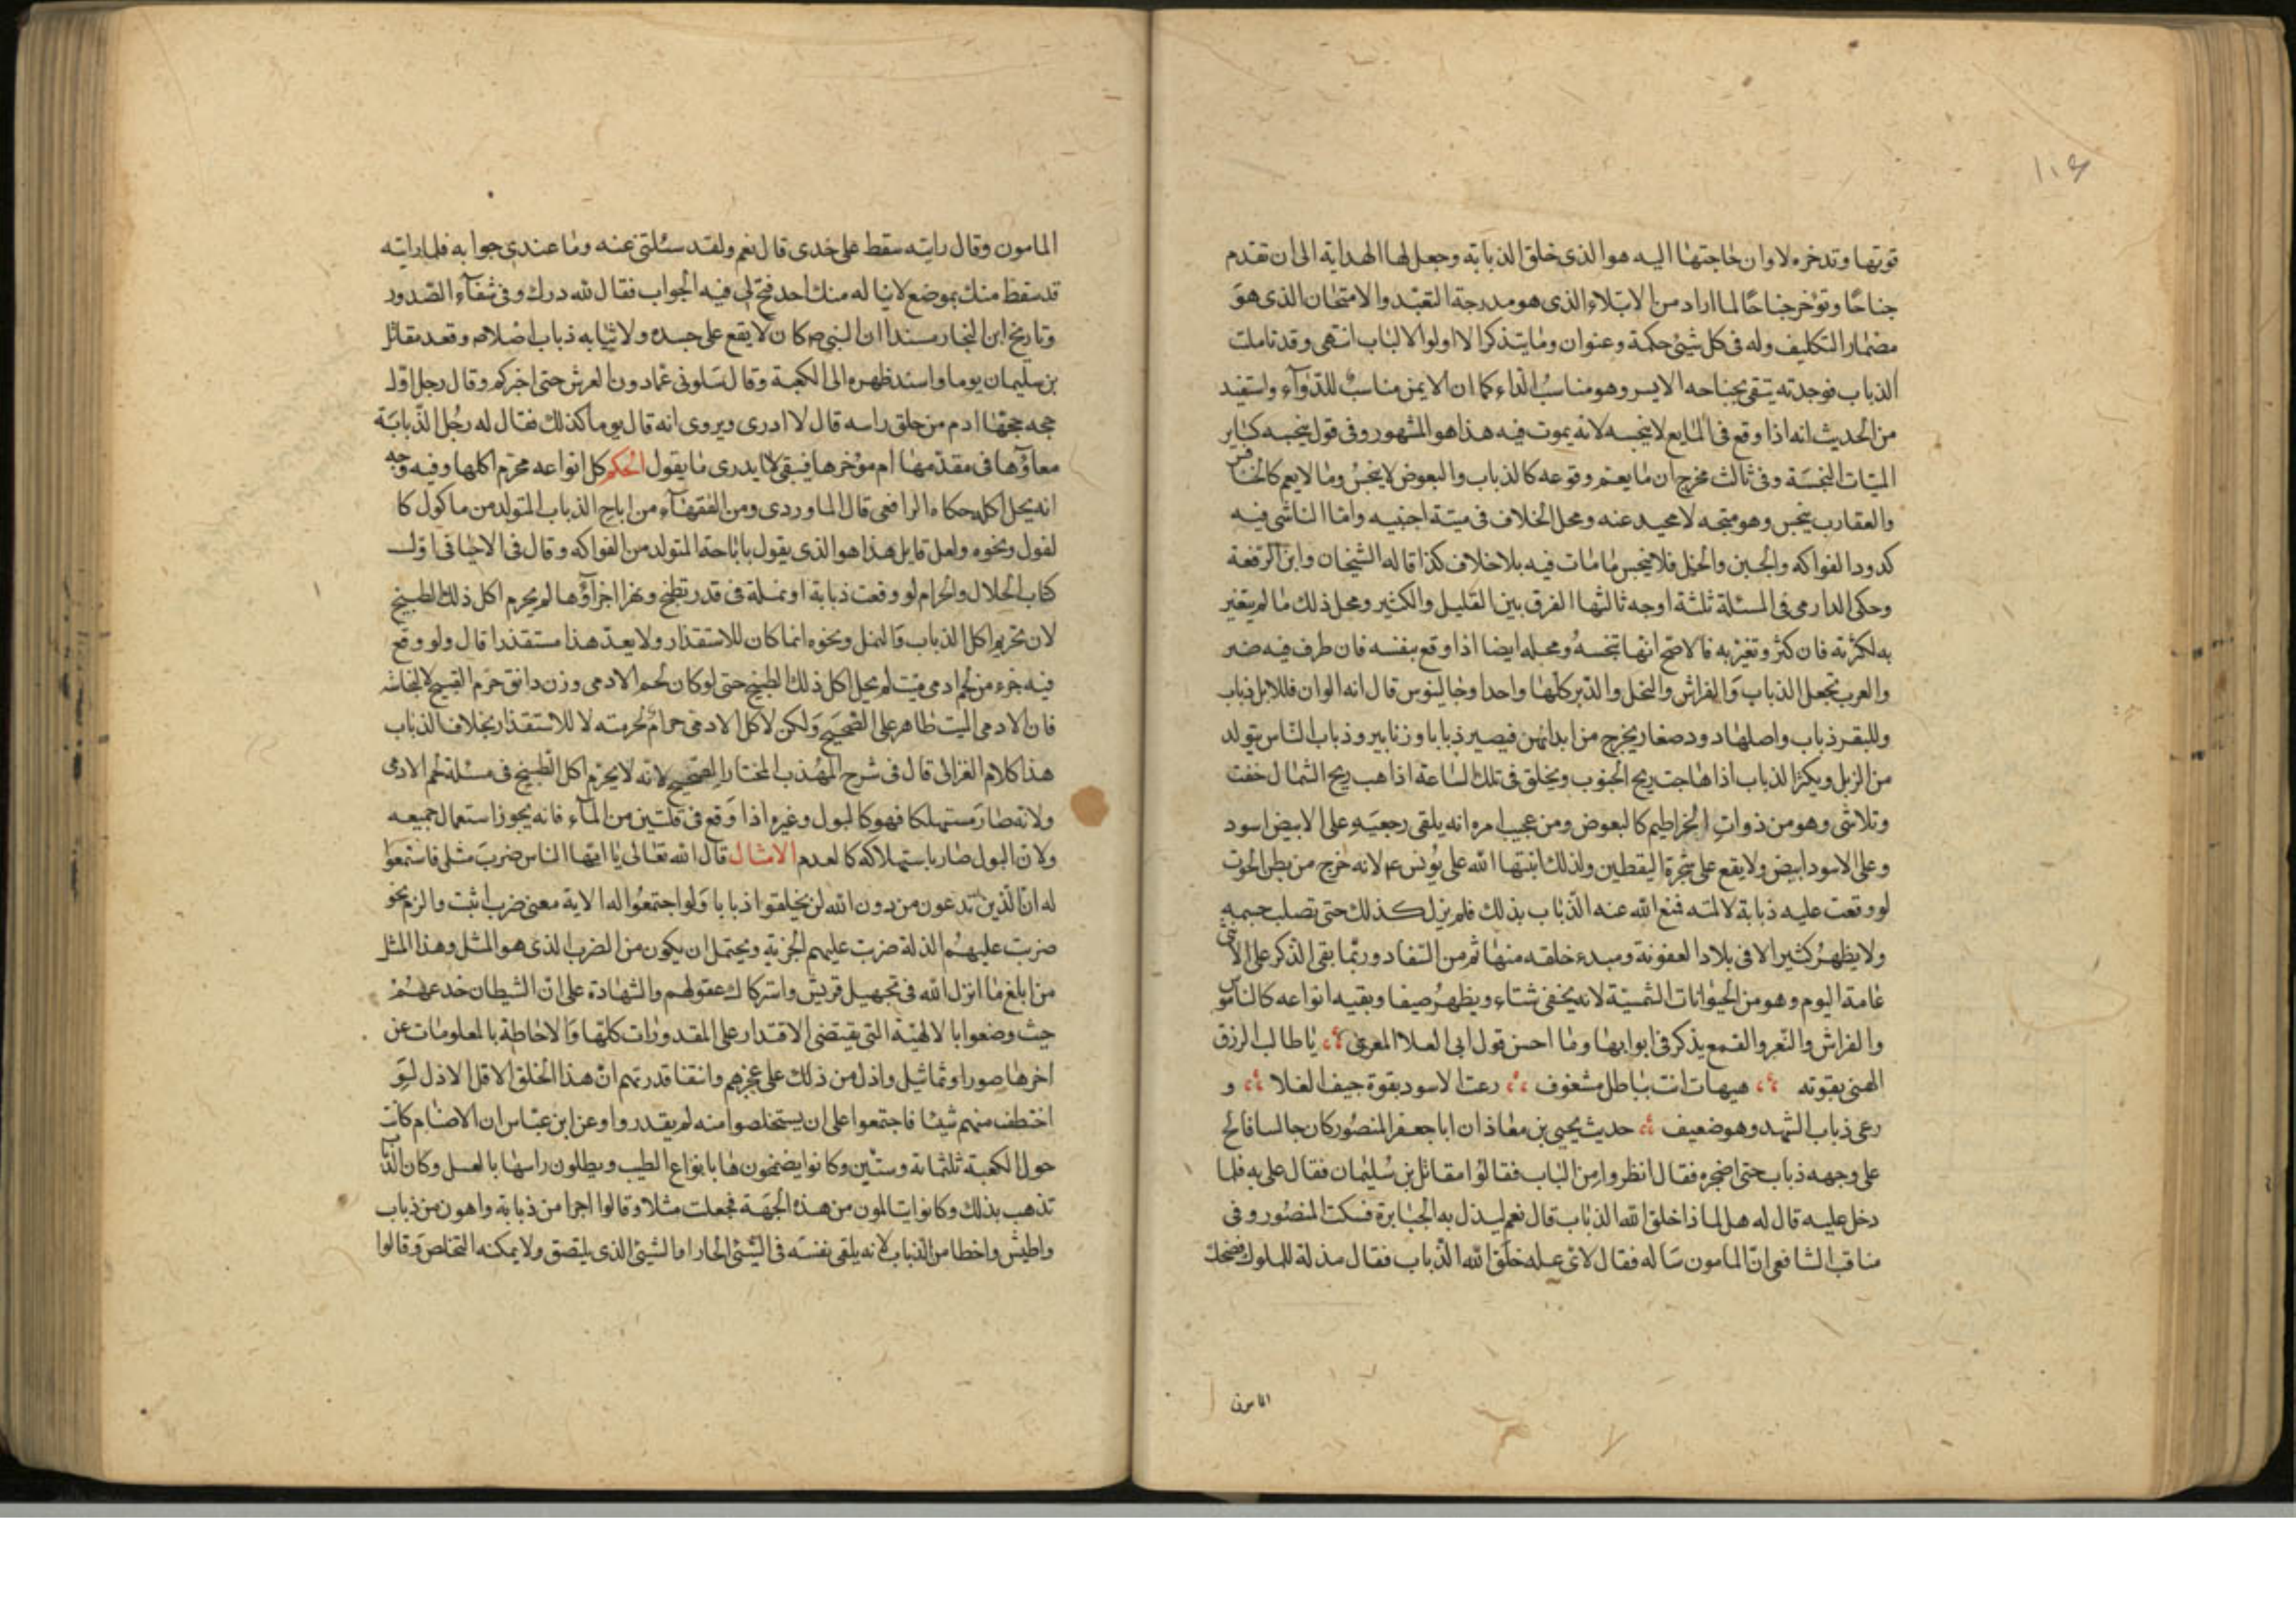 قوتها وتدخره لاوان حاجتها اليه هو الذى خلق الذبابة وجعل لها الهداية الى ان تقدم
جناحًا وتؤخر جناحًا لما اراد من الابتلاء الذى هو مدرجة التعبّد والامتحان الذى هو
مضمار التكليف وله فى كل شيئ حكمة وعنوان وما يتذكر الا اولوا الالباب انتهى وقد تاملت
الذباب فوجدته يتقى بجناحه الايسر وهو مناسبُ الداء كما ان الايمن مناسبٌ للدّوآء واستفيد
من الحديث انه اذا وقع فى المايع لا ينجسه لانه يموت فيه هذا هو المشهور وفى قول ينجسه كساير
الميتات النجسَة وفى ثالث مخرج ان ما يعم وقوعه كالذباب والبعوض لا ينجسُ وما لا يعم كالخنافس
والعقارب ينجس وهو متجه لا محيد عنه ومحل الخلاف فى ميتة اجنبيه وامّا الناشى فيه
كدود الفواكه والجبن والخل فلا ينجس ما مات فيه بلا خلاف كذا قاله الشيخان وابن الرفعة
وحكى الدارمى فى المسئلة ثلثة اوجه ثالثها الفرق بين القليل والكثير ومحل ذلك ما لم يتغير
به لكثرته فان كثر وتغيّر به فالاصح انها تنجسهُ ومحله ايضا اذا وقع بنفسه فان طرف فيه ضر
والعرب تجعل الذباب وَالفراش والنحل والدّبر كلها واحدا وجالينوس قال انه الوان فللابل ذباب
وللبقر ذباب واصلها دود صغار يخرج من ابدانهن فيصير ذبابا وزنابير وذباب النّاس يتولد
من الزبل ويكثر الذباب اذا هاجت ريح الجنوب ويخلق فى تلك السّاعة اذا هب ريح الشمال خفت
وتلاشى وهو من ذواتِ الخراطيم كالبعوض ومن عجيب امره انه يلقى رجعيَه على الابيض اسود
وعلى الاسود ابيض ولا يقع على شجرة اليقطين ولذلك انبتها الله على يُونس ع م لانه خرج من بطن الحوت
لو وقعت عليه ذبابة لالمته فمنع الله عنه الذّباب بذلك فلم يزل كذلك حتى تصلب جسمه
ولا يظهرُ كثيرا الا فى بلاد العفونة ومبدء خلقه منها ثم من السّفاد وربّما بقى الذكر على الانثى
عامة اليوم وهو من الحيوانات الشمسيّة لانه يخفى شتاء ويظهرُ صيفا وبقيه انواعه كالناموس
والفراش والنّعر والقمع يذكر فى ابوابها وما احسن قول ابى العلا المعرىّ يا طالب الرزق
الهنى بقوته هيهات انت بباطل مشغوف رعت الاسود بقوة جيف الفلا و
رعى ذباب الشهد وهو ضعيف حديث يحيى بن معاذ ان ابا جعفر المنصُور كان جالسا فالح
على وجهه ذباب حتى اضجره فقال انظروا من الباب فقالوُا مقاتل بن سُليمان فقال علىّ به فلما
دخل عليه قال له هل لماذا خلق الله الذباب قال نعم ليذل به الجبابرة فسكت المنصُور وفى
مناقب الشافعى انّ المامون سَاله فقال لاىّ عله خلق الله الذّباب فقال مذلة للملوك فضحك
المامون
المامون وقال رايته سقط على خدى قال نعم ولقد سئلتنى عنه وما عندى جوابه فلما رايته
قد سقط منك بموضع لا يناله منك احد فتح لى فيه الجواب فقال لله درك وفى شفآء الصّدور
وتاريخ ابن النجار مسندا ان النبى ص كان لا يقع على جسده ولا ثيابه ذباب اصلا م وقعد مقاتل
بن سليمان يوما واستد ظهره الى الكعبة وقال سَلونى عمّا دون العرش حتى اخبركم وقال رجل اوّل
حجه حجّها ادم من حلق راسه قال لا ادرى ويروى انه قال يوما كذلك فقال له رجُل الذّبابَة
معاؤها فى مقدّمها ام مؤخرها فبقى لا يدرى ما يقول الحكم كل انواعه محرّم اكلها وفيه وجه
انه يحل اكله حكاه الرافعى قال الماوردى ومن الفقهآء من اباح الذباب المتولد من ماكول كا
لفول ونحوه ولعل قايل هذا هو الذى يقول باباحة المتولد من الفواكه وقال فى الاحيا فى اوّل
كتاب الحلال والحرام لو وقعت ذبابة او نملة فى قدر يطبخ وتهرا اجزاؤها لم يحرم اكل ذلك الطبيخ
لان تحريم اكل الذباب وَالنمل ونحوه انما كان للاستقذار ولا يعدّ هذا مستقذرا قال ولو وقع
فيه جزء من لحم ادمى ميّت لم يحل اكل ذلك الطبيخ حتى لو كان لحم الادمى وزن دانق حرّم الطبيخ لا لنجاسته
فان الادمى الميت طاهر على الصّحيح وَلكن لاكل الادمى حرامٌ لحرمته لا للاستقذار بخلاف الذباب
هذا كلام الغزالى قال فى شرح المهُذب المختار الصحيح لانه لا يحرّم اكل الطبيخ فى مسئلة لحم الادمى
ولانه صَار مستهلكا فهو كالبول وغيره اذا وَقع فى قلتين من المآء فانه يجوز استعمال جميعه
ولان البول صَار باستهلاكه كالعدم الامثال قال الله تعالى يا ايها الناس ضربَ مثل فاستمعوا
له انّ الّذين تدعون من دون الله لن يخلقوا ذبابا وَلو اجتمعُوا له الاية معنى ضرب اثبت والزم نحو
ضربت عليهُم الذلة ضربت عليهم الجزية ويحتمل ان يكون من الضرب الذى هو المثل وهذا المثل
من ابلغ ما انزل الله فى تجهيل قريش واستركاك عقولهم والشهادة على انّ الشيطان خدعهُمْ
حيث وضعوا بالالهيّة التى يقتضى الاقتدار على المقدورات كلّها وَالاحاطة بالمعلومات عن
اخرها صورا وتماثيل واذل من ذلك على عجزهم وانتفا قدرتهم انّ هذا الخلق الاقل الاذل لو
اختطف منهم شيئا فاجتمعوا على ان يستخلصوا منه لم يقدروا وعن ابن عبّاس ان الاصنام كانت
حول الكعبة ثلثمائة وستّين وكانوا يضمخون ها بانواع الطيب ويطلون راسها بالعسل وكان الذباب
تذهب بذلك وكانوا يتالمون من هذه الجهَة فجعلت مثلا وقالوا اجرا من ذبابة واهون من ذباب
واطيش واخطا من الذباب لانه يلقى نفسَه فى الشيئ الحار او الشيئ الذى يلتصق ولا يمكنه التخلص وَقالوا